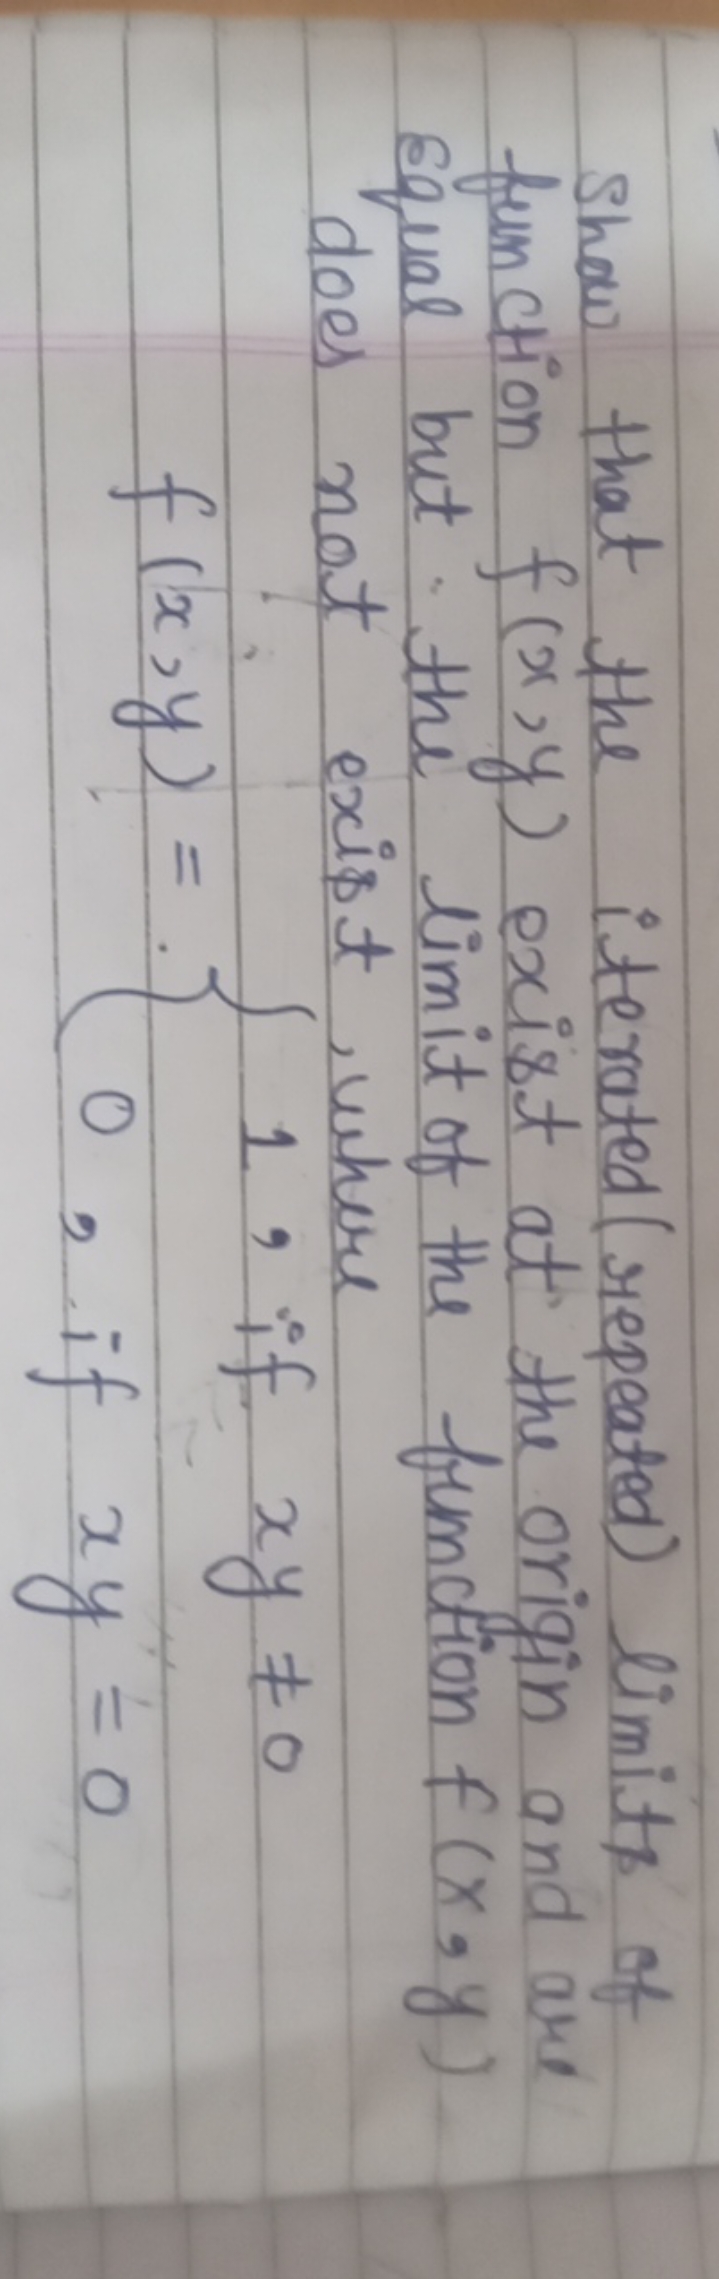 Show that the iterated (repeated) limits of
function f(x,y) exist at the origin and are
Equal but the limit of the function f(x,y)
does not exist, where
f(x,y) = { 1, if xy ≠ 0
0, if xy = 0